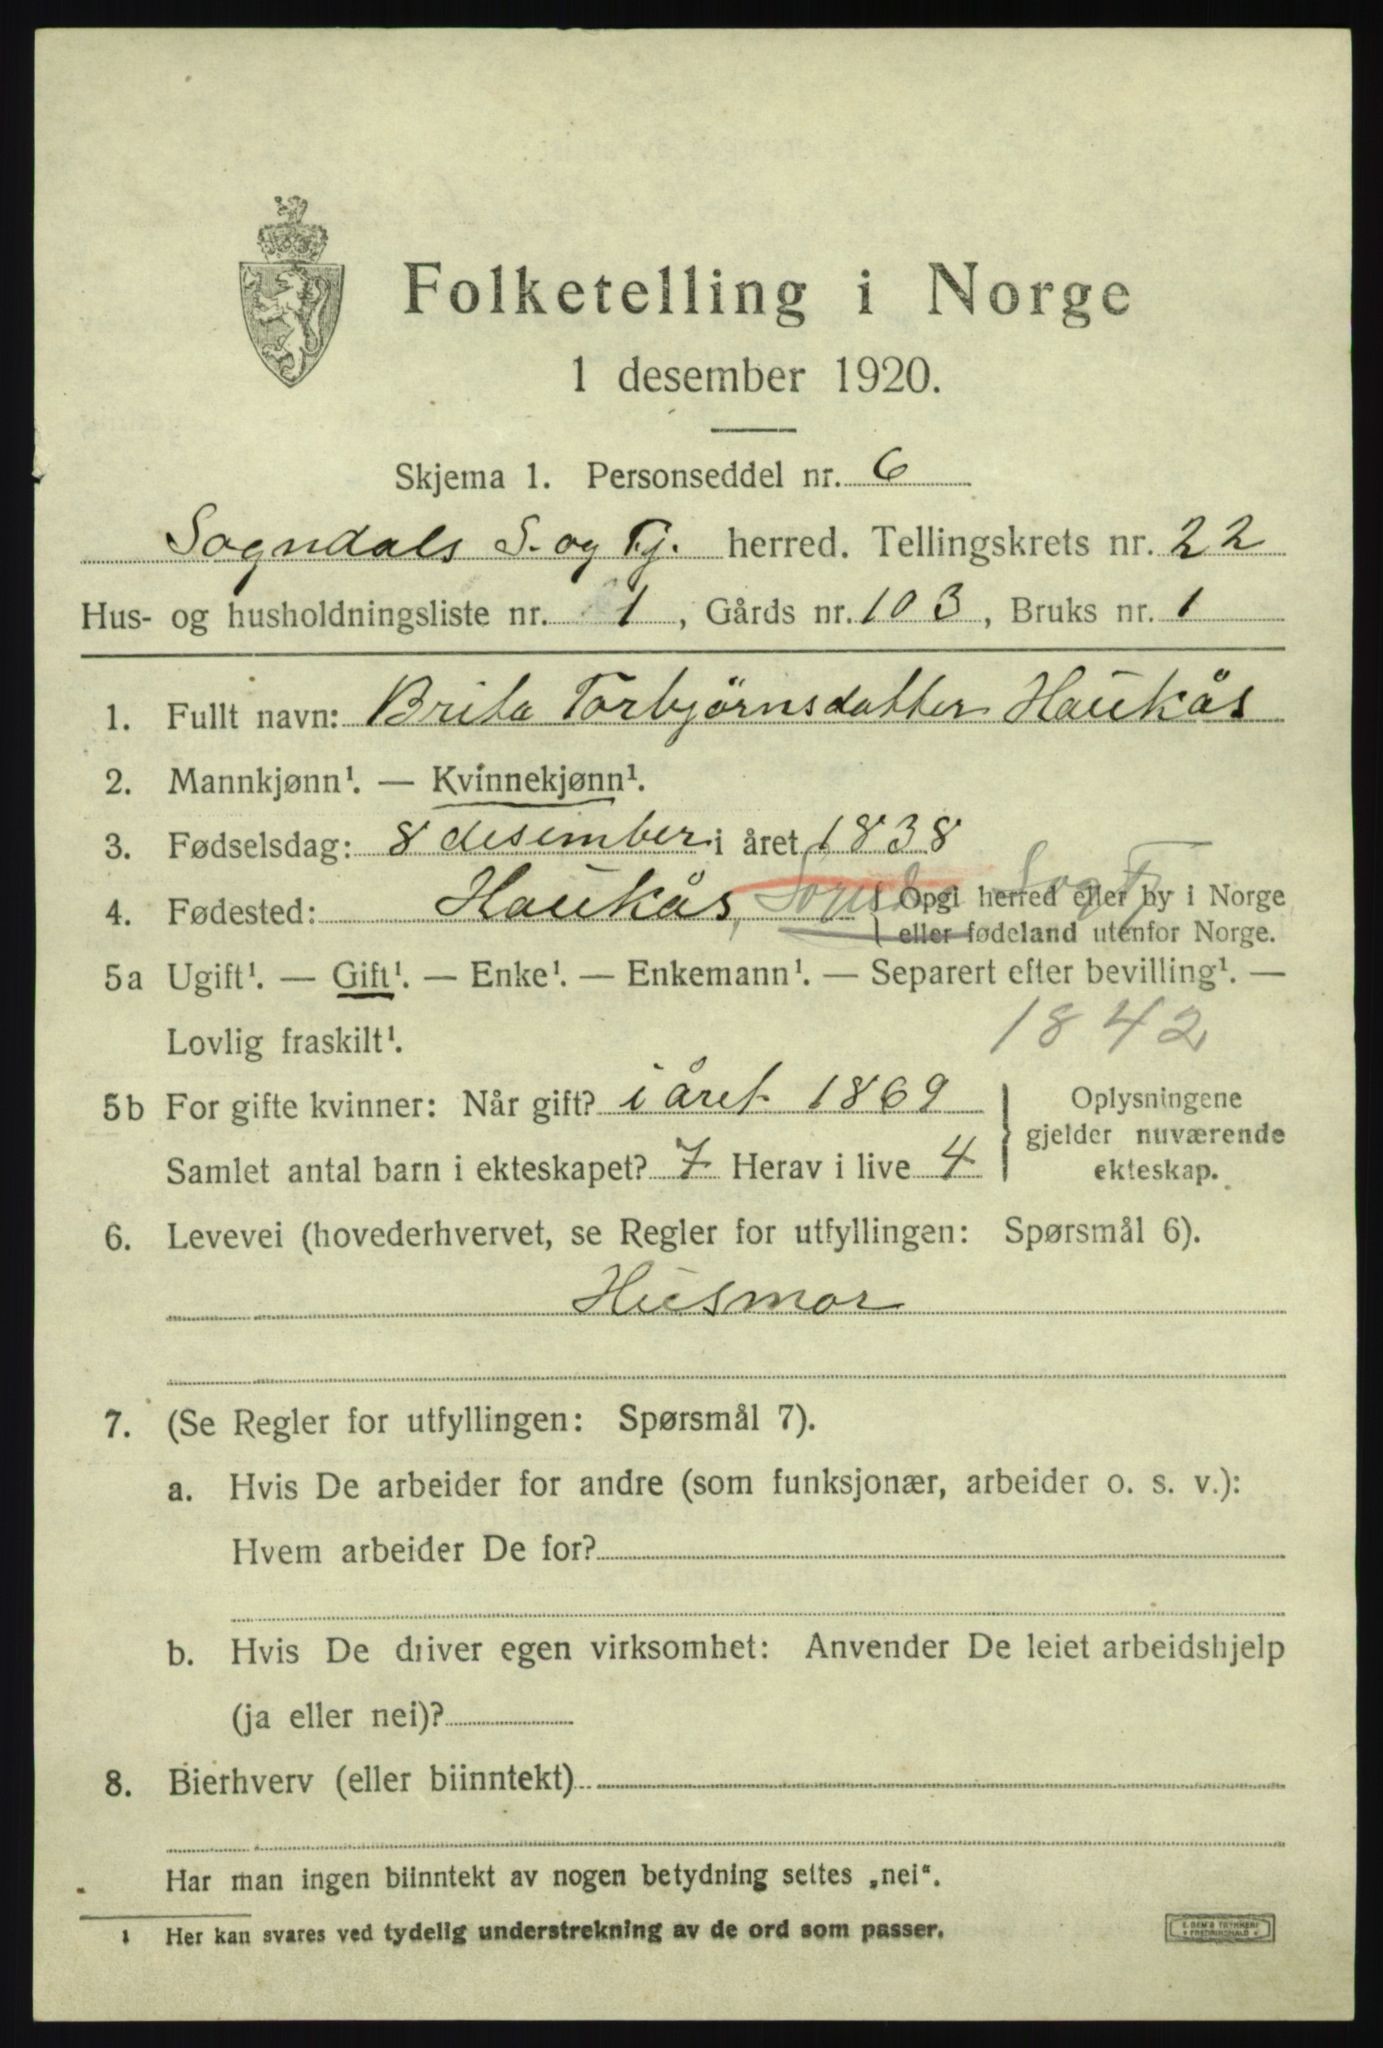 Folketelling i Norge
1 desember 1920.
Skjema 1. Personseddel nr. 6
Sogndals S. og Fj. herred. Tellingskrets nr. 22
Hus- og husholdningsliste nr. 1, Gårds nr. 103, Bruks nr. 1
1. Fullt navn: Brita Torbjörnsdatter Haukås
2. Mannkjønn¹. — Kvinnekjønn¹.
3. Fødselsdag: 8 desember i året 1838
4. Fødested: Haukås, Sogndal Sogn Fj
{ Opgi herred eller by i Norge
eller fødeland utenfor Norge.
5a Ugift¹. — Gift¹. — Enke¹. — Enkemann¹. — Separert efter bevilling¹. —
Lovlig fraskilt¹. 1842
5b For gifte kvinner: Når gift? i året 1869
Samlet antal barn i ekteskapet? 7 Herav i live 4
} Oplysningene
gjelder nuværende
ekteskap.
6. Levevei (hovederhvervet, se Regler for utfyllingen: Spørsmål 6).
Husmor
7. (Se Regler for utfyllingen: Spørsmål 7).
a. Hvis De arbeider for andre (som funksjonær, arbeider o. s. v.):
Hvem arbeider De for?
b. Hvis De driver egen virksomhet: Anvender De leiet arbeidshjelp
(ja eller nei)?
8. Bierhverv (eller biinntekt)
Har man ingen biinntekt av nogen betydning settes „nei“.
1 Her kan svares ved tydelig understrekning av de ord som passer.
E. SEM'S TRYKKERI
FREDRIKSHALD